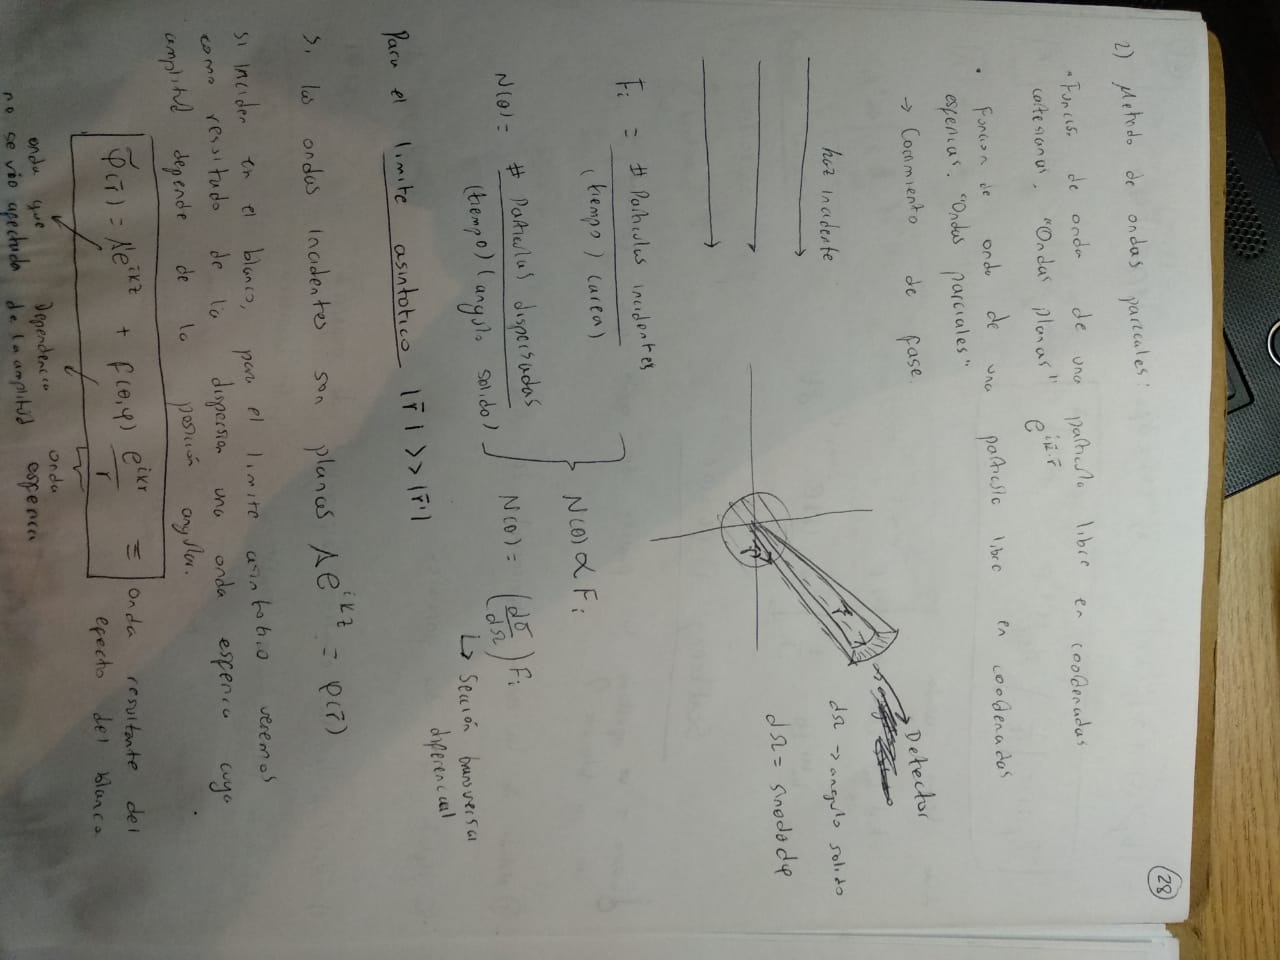 28
2) Metodo de ondas parciales:
• Funcion de onda de una particula libre en coordenadas
cartesianas. "Ondas planas" e^{i\bar{k}\cdot\bar{r}}
• Funcion de onda de una particula libre en coordenadas
esfericas. "Ondas parciales"
→ Corrimiento de fase.
haz incidente
Detector
dΩ → angulo solido
dΩ = sinθdθdφ
r'
r
Fi = # Particulas incidentes / (tiempo) (area)
N(θ) = # Particulas dispersadas / (tiempo) (angulo solido)
N(θ) ∝ Fi
N(θ) = (dσ/dΩ) Fi
↳ Sección transversal
diferencial
Para el limite asintotico |r̄| >> |r̄'|
Si las ondas incidentes son planas Ae^{ikz} = φ(r̄)
si inciden en el blanco, para el limite asintotico veremos
como resultado de la dispersion una onda esferica cuya
amplitud depende de la posición angular.
φ̃(r̄) = Ae^{ikz} + f(θ,φ) e^{ikr}/r ≡ onda resultante del
efecto del blanco
onda que
no se vio afectada
Dependencia
de la amplitud
onda
esferica